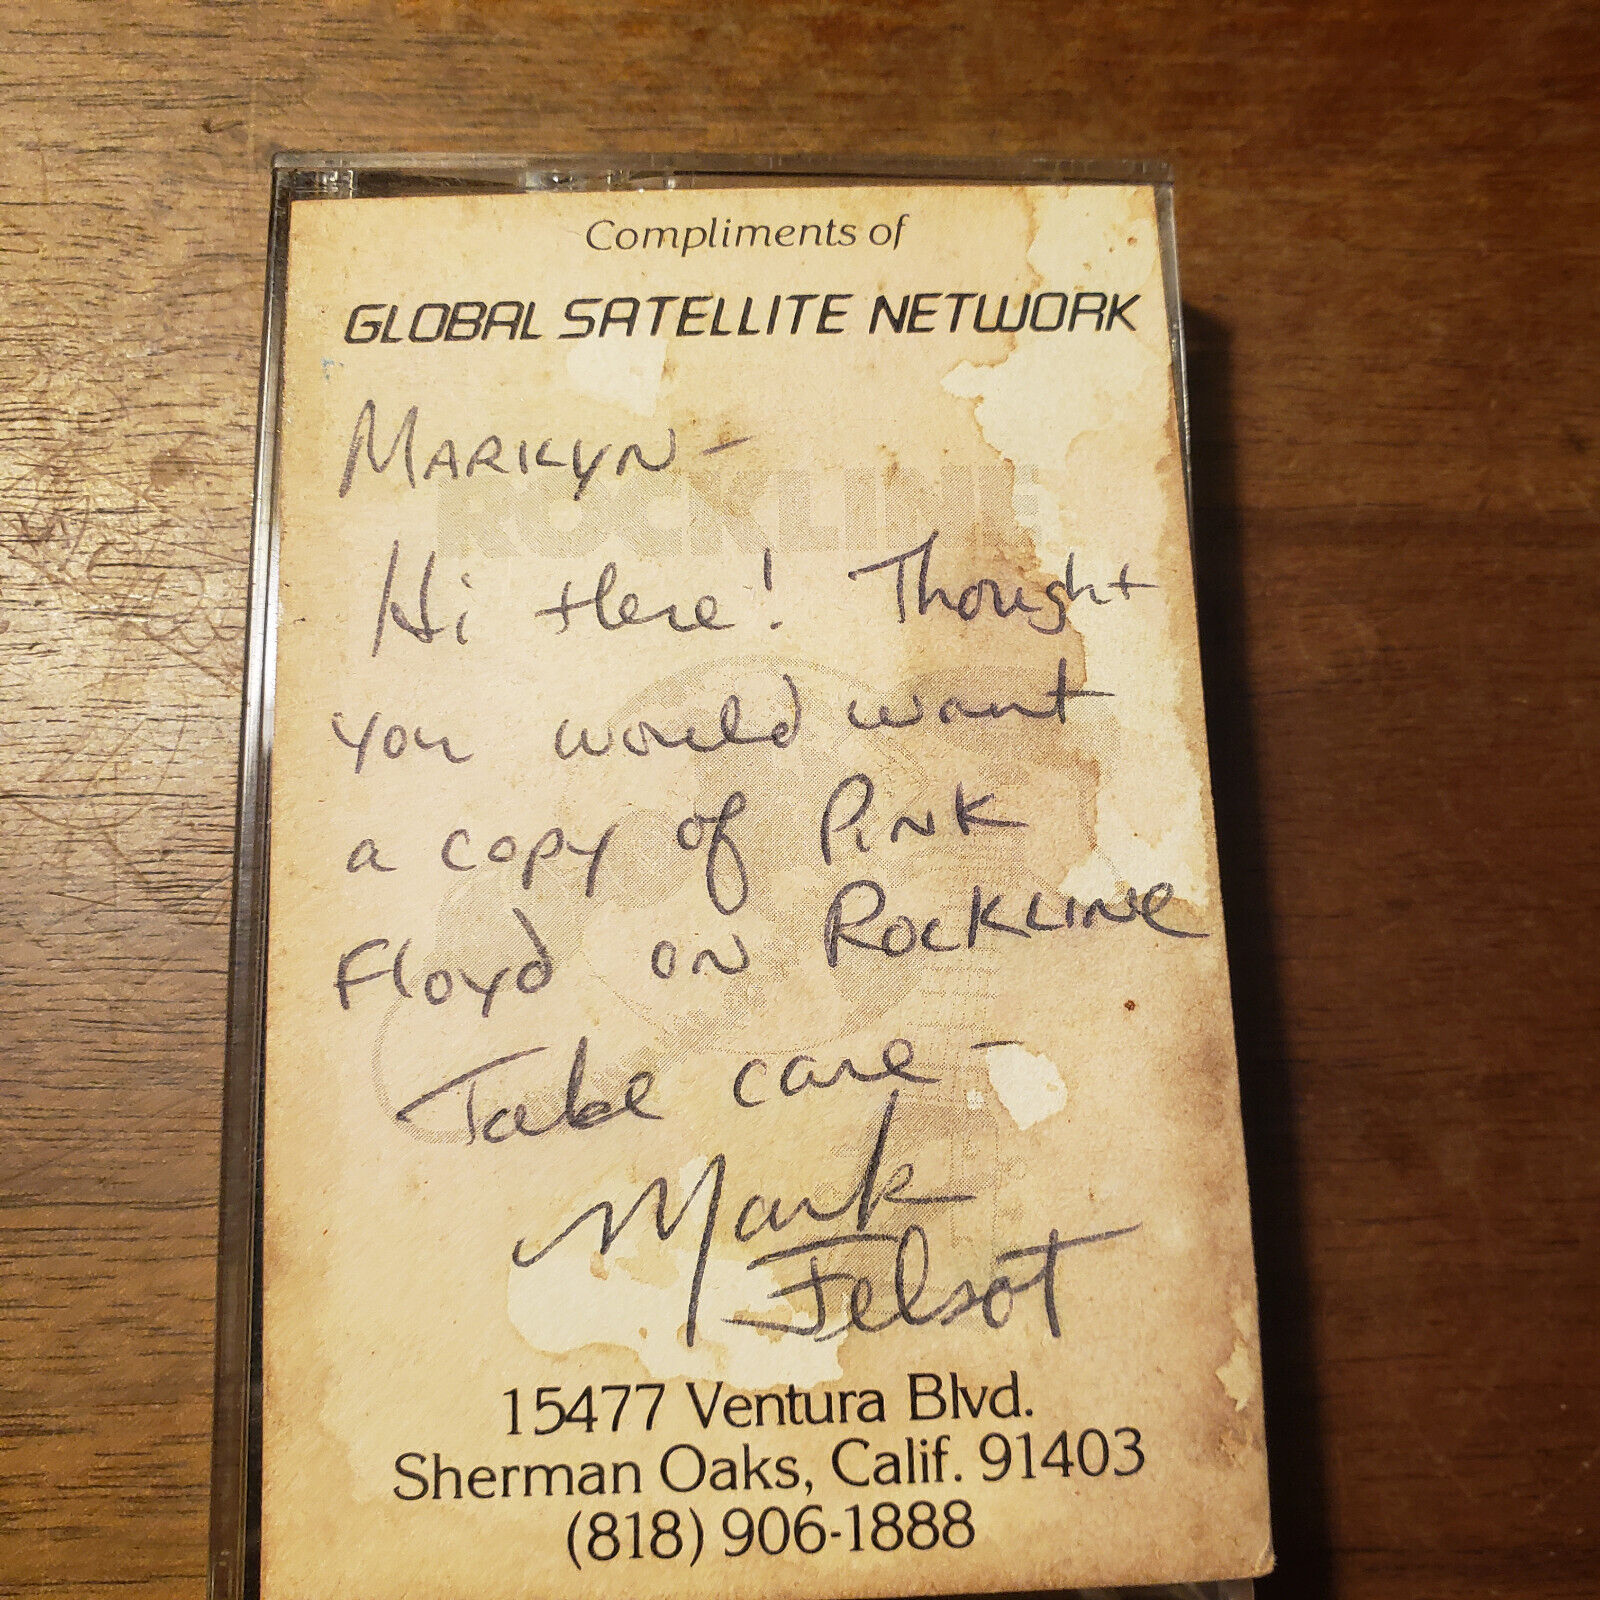 Compliments of
GLOBAL SATELLITE NETWORK
MARKYN-
ROCKLINE
Hi there! Thought
you would want
a copy of PINK
Floyd ON ROCKLINE
Take care-
Mark
Felsot
15477 Ventura Blvd.
Sherman Oaks, Calif. 91403
(818) 906-1888